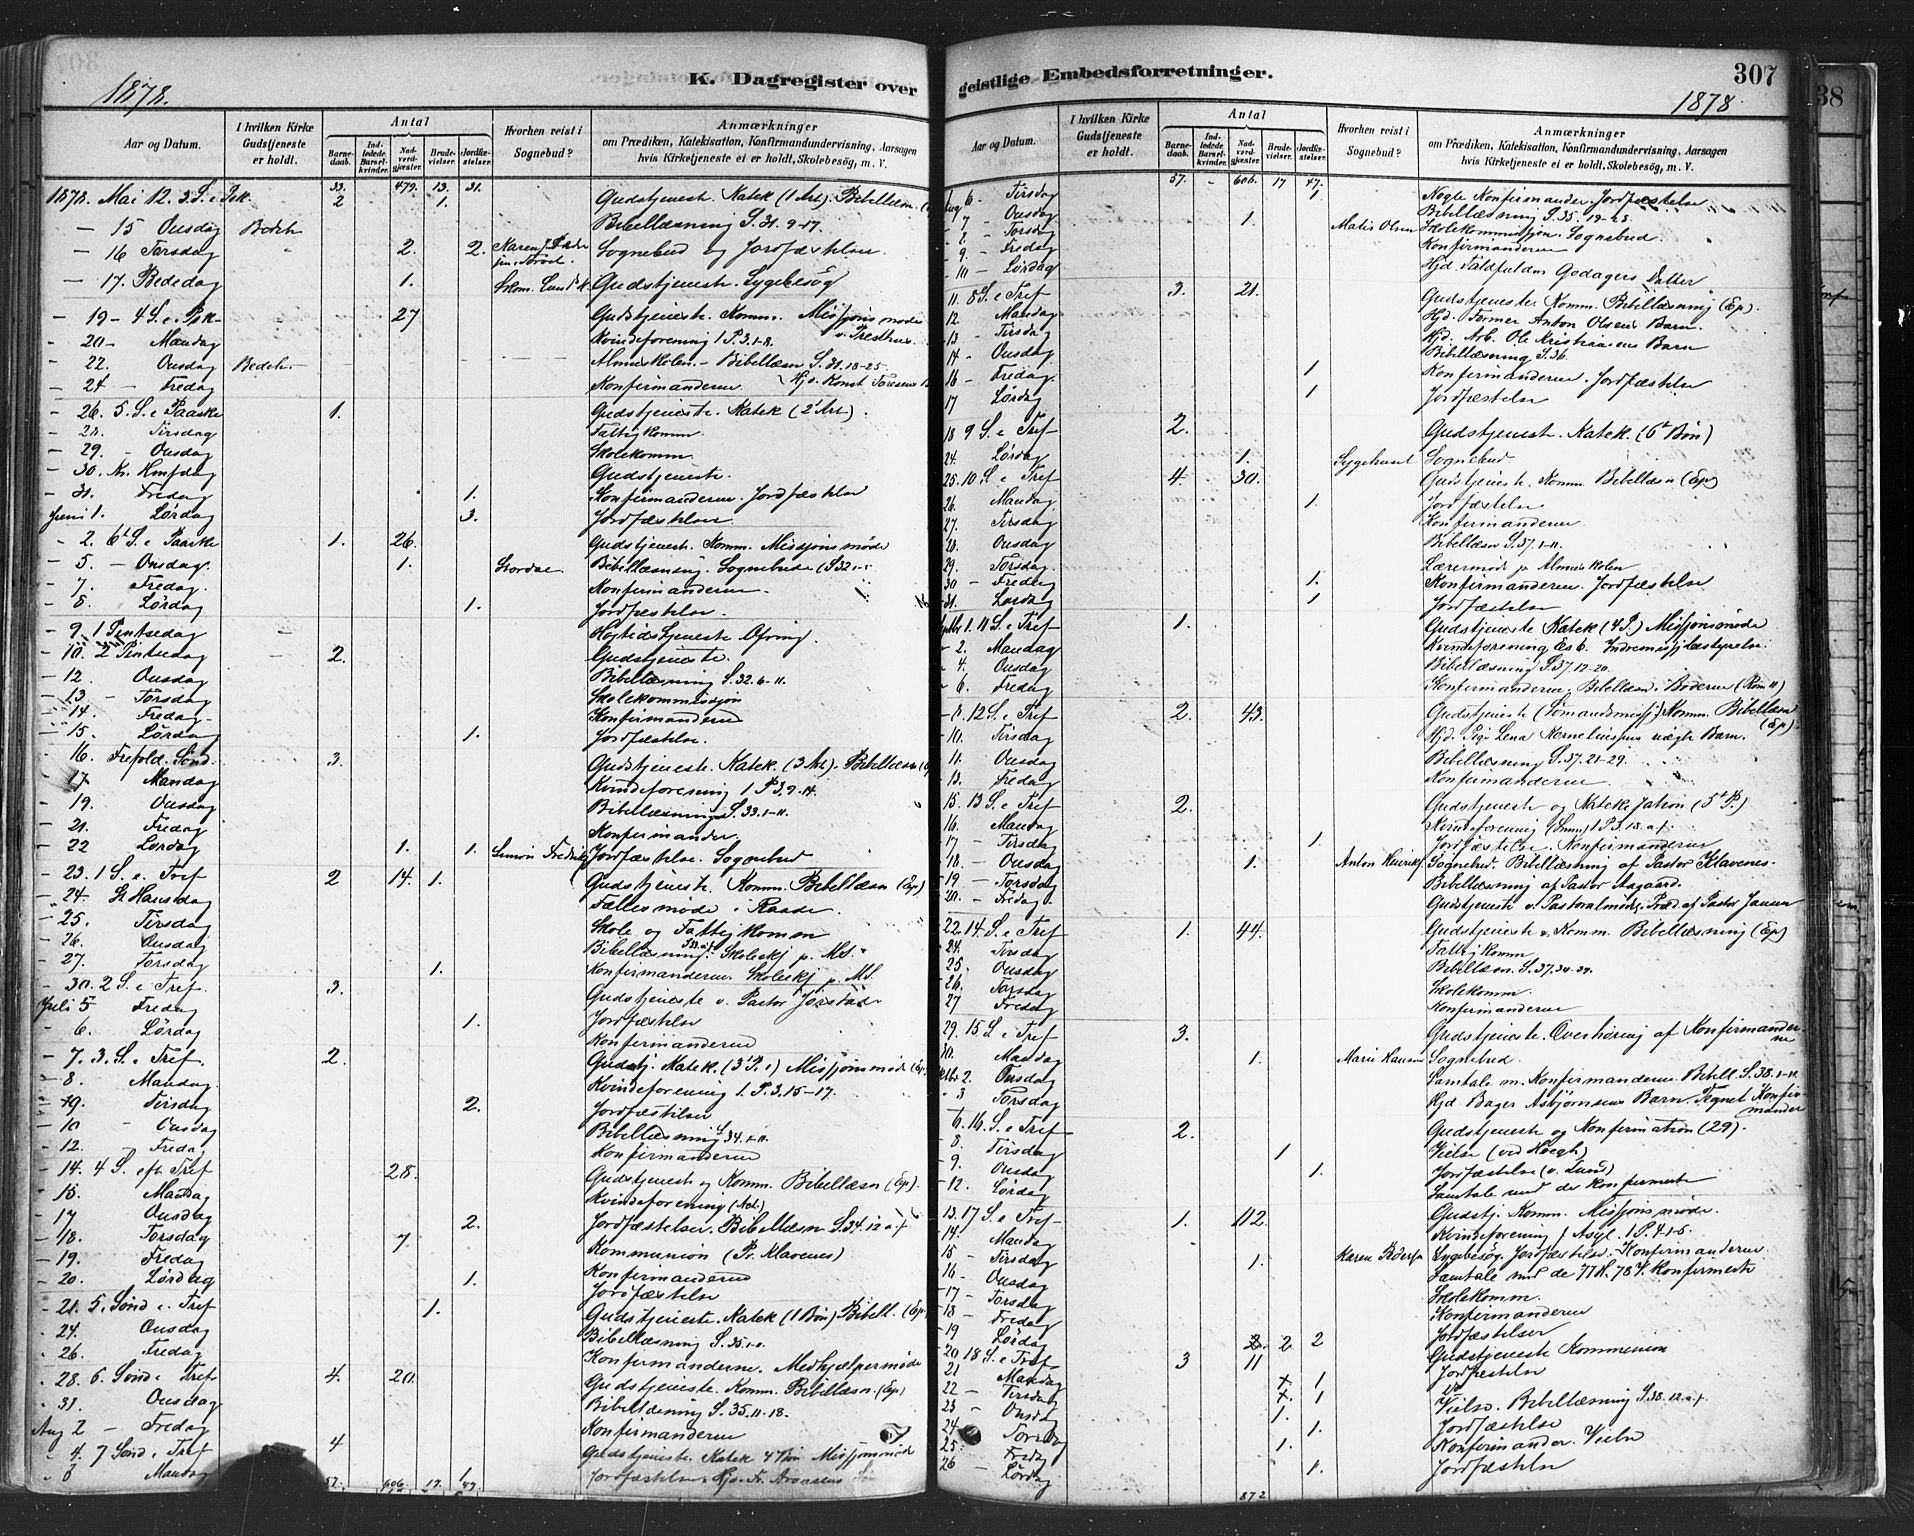 1878.
K. Dagregister over
Aar og Datum.
I hvilken Kirke Gudstjeneste er holdt.
Antal
Barnedaab.
Indledede Barselkvinder.
Nadverdgjæster.
Brudevielser.
Jordfæstelser.
Hvorhen reist i Sognebud?
Anmærkninger
om Prædiken, Katekisation, Konfirmandundervisning, Aarsagen
hvis Kirketjeneste ei er holdt, Skolebesøg, m. V.
33. 479. 13. 31.
1878. Mai 12. 3. S. e. Psk. 2 1. Gudstjeneste. Katek (1 Art). Bibellæsn.
- 15 Onsdag Bedeh. Bibellæsning S. 31. 9-17.
- 16 Torsdag " 2. 2. Sognebud og Jordfæstelser.
- 17. Bededag 1. Gudstjeneste. Sygebesøg
- 19 - 4 S. e. Psk- 27 Gudstjeneste. Komm. Missjonsmøde v. Presthus
- 20 - Mandag Kvindeforening 1 P. 3. 1-8.
- 22. Onsdag Bedeh. - Almueskolen. - Bibellæsn S. 31. 18-25.
- 24 - Fredag Konfirmanderne
- 26. 5. S. e. Paaske 1. Gudstjeneste. Katek (2 Art).
- 28. Tirsdag Fattigkomm.
- 29. - Onsdag Skolekomm.
- 30. Kr. Hmfdag Gudstjeneste.
- 31. Fredag 1. Konfirmanderne. Jordfæstelse
Juni 1. Lørdag 3. Jordfæstelser.
- 2. 6t S. e. Paaske 1. 26. Gudstjenest. Komm. Missjonsmøde
- 5. - Onsdag. 1. Bibellæsning. Sognebud
- 7. Fredag. Konfirmanderne.
- 8. Lørdag 1. Jordfæstelse.
- 9. 1 Pintsedag - Høitidstjeneste Ofring.
- 10. 2 Pintsedag - 2. Gudstjeneste.
- 12. Onsdag Bibellæsning S. 32. 6-11.
- 13 - Torsdag Skolekommissjon
- 14. Fredag - Konfirmanderne
- 15. Lørdag 1. Jordfæstelse.
- 16. Trefold. Sønd. 3. Gudstjeneste. Katek. (3 Art). Bibellæsn
- 17. Mandag Kvindeforening 1 P 3. 9-14.
- 19. Onsdag Bibellæsning S. 33. 1-11.
- 21. Fredag Konfirmander.
- 22 Lørdag 1. 1. Jordfæstelse. Sognebud
- 23. 1 S. e. Tref 2 14. 1. Gudstjeneste. Komm. Bibellæsn (Ep)
- 24. St Hansdag Fællesmøde i Raade.
- 25. Tirsdag Skole og Fattigkomm
- 26. Onsdag Bibellæsning
- 27. Torsdag 1. Konfirmanderne
- 30. 2 S. e Tref. 3. Gudstjeneste v. Pastor Jørstad
Juli 5 Fredag 1. Jordfæstelse
- 6. Lørdag Konfirmanderne
- 7. 3. S. e Tref. 2. Gudstj. Katek. Missjonsmøde (Ep)
- 8. Mandag. Kvindeforening 1. P. 3. 15-17.
- 9. Tirsdag 2. Jordfæstelser
- 10 - Onsdag Bibellæsning S. 34. 1-11.
- 12. Fredag Konfirmanderne
- 14. 4 S. eft Tref 28. Gudstjenest og Komm. Bibellæsn (Ep).
- 15. Mandag Kvindeforening
- 17 Onsdag 2. Jordfæstelser. Bibellæsn. S. 34. 12 a f
- 18. Torsdag 7. Kommunion (Pr. Klavenes)
- 19. Fredag Konfirmanderne
- 20. Lørdag 1. Jordfæstelse
- 21. 5. Sønd e. Tref 1. Gudstjeneste. Katek (1 Bøn) Bibell. (Ep.
- 24. Onsdag Bibellæsning S. 35.
- 26. Fredag Konfirmanderne. Medhjælpermøde
- 28. 6. Sønd e Tref 4. 20. Gudstjeneste. Komm. Bibellæsn. (Ep)
- 31. Onsdag Bibellæsning S. 35. 11-18.
Aug 2 - Fredag Konfirmanderne
- 4. 7 Sønd e Tref 4 Gudstjeneste Katek 4 Bøn Missjonsmøde
Mandag 1. Jordfæstelse.
57. 606. 17. 47.
geistlige Embedsforretninger.
307
1878.
Aar og Datum.
I hvilken Kirke Gudstjeneste er holdt.
Antal
Barnedaab.
Indledede Barselkvinder.
Nadverdgjæster.
Brudevielser.
Jordfæstelser.
Hvorhen reist i Sognebud?
Anmærkninger
om Prædiken, Katekisation, Konfirmandundervisning, Aarsagen
hvis Kirketjeneste ei er holdt, Skolebesøg, m. V.
57. - 606. 17 47.
Aug 6 - Tirsdag 1 Nogle Konfirmander. Jordfæstelse
7 Onsdag Bibellæsning S. 35. 19-28.
8 - Torsdag 1. Matis Olsen Skolekommissjon. Sognebud.
9 - Fredag Konfirmanderne
10 - Lørdag
11. 8 S. e Tref 3. 21. Gudstjeneste. Komm. Bibellæsning (Ep).
12. Mandag Hjd. Former Anton Olsens Barn.
13 - Tirsdag Hjd. Arb. Ole Kristiansens Barn
14 - Onsdag Bibellæsning S. 36.
16 - Fredag. 1 Konfirmanderne. Jordfæstelse
17 Lørdag 1 Jordfæstelse
18 9 S. e Tref 2. Gudstjeneste. Katek. (6t Bøn)
24. Lørdag 1. Sygehuset Sognebud
25. 10 S. e Tref 4 30. Gudstjeneste. Komm Bibellæsn (Ep)
26. Mandag 1. Jordfæstelse
27. Tirsdag Konfirmanderne.
28. Onsdag Bibellæsn S. 37. 1-11.
29. Torsdag Lærermøde p. Almueskolen
30 - Fredag 1. Konfirmanderne. Jordfæstelse
31. Lørdag 1 Jordfæstelse
1. 11 S. e Tref 1. Gudstjeneste Katek (4 P.) Missjonsmøde
- 2. Mandag Kvindeforening
- 4. Onsdag Bibellæsning S. 37. 12-20.
- 6. Fredag Konfirmanderne. Bibellæsn i Boderne (Rom 11)
- 8. 12 S. e Tref 2. 43. Gudstjeneste (Sømandsmissj) Komm. Bibellæsn (Ep).
- 10. Tirsdag Hjd. Pige Lena Korneliussens uægte Barn.
11. Onsdag Bibellæsning S. 37. 21-29.
13. Fredag Konfirmanderne
15. 13 S. e Tref 2. Gudstjeneste og Katekisation (5t P.)
16. Mandag Kvindeforening
17 - Tirsdag 1 Jordfæstelse. Konfirmanderne
18. - Onsdag 1. Anton Henriks Sognebud. Bibellæsning af Pastor Klavenes.
19 - Torsdag Bibellæsning af Pastor Aagaard.
20. - Fredag. Gudstjeneste v. Pastoralmøde. Præd. af Pastor Jansen
22. 14. S. e Tref 1. 44. Gudstjeneste. Komm. Bibellæsning (Ep)
24. Tirsdag Fattigkomm
25. Onsdag Bibellæsn. S. 37. 30-39.
26. Torsdag Skolekomm.
27 Fredag Konfirmanderne
29. 15 S. e Tref 3. Gudstjeneste. Overhøring af Konfirmanderne
30. Mandag 1. Marie Hansen Sognebud.
2. Onsdag Samtale m. Konfirmanderne. Bibell. S. 38. 1-11
3 Torsdag Hjd. Bager Asbjørnsens Barn. Tegnet Konfirmander
6. 16. S. e Tref 2. Gudstjeneste og Konfirmation (29).
8. Tirsdag 1 Vielse (ved Høegh)
9. Onsdag 1. Jordfæstelse (v. Lund)
12. Lørdag Samtale med de konfirmerte
13. 17 S. e Tref 1. 112. Gudstj. Komm. Missjonsmøde.
14. Mandag Kvindeforening f. Asyl. 1. P. 4. 1-5.
15 - Tirsdag 1. Karen Pedersen Sygebesøg. Jordfæstelse. Konfirmanderne.
16 - Onsdag Samtale med de konfirmerte
17 - Torsdag Skolekomm.
18 - Fredag Konfirmanderne
19 Lørdag 2. 2 2 Jordfæstelser
20 18 S. e Tref 3 11 Gudstjeneste Kommunion
21 Mandag 1 Jordfæstelse
22 - Tirsdag 1
23 - Onsdag 1. Vielse. Bibellæsning S. 38. 12 a f.
24 Torsdag 1. Jordfæstelse
25. Fredag 1. Konfirmander. Vielse
26 - Lørdag 1. Jordfæstelse
872
38